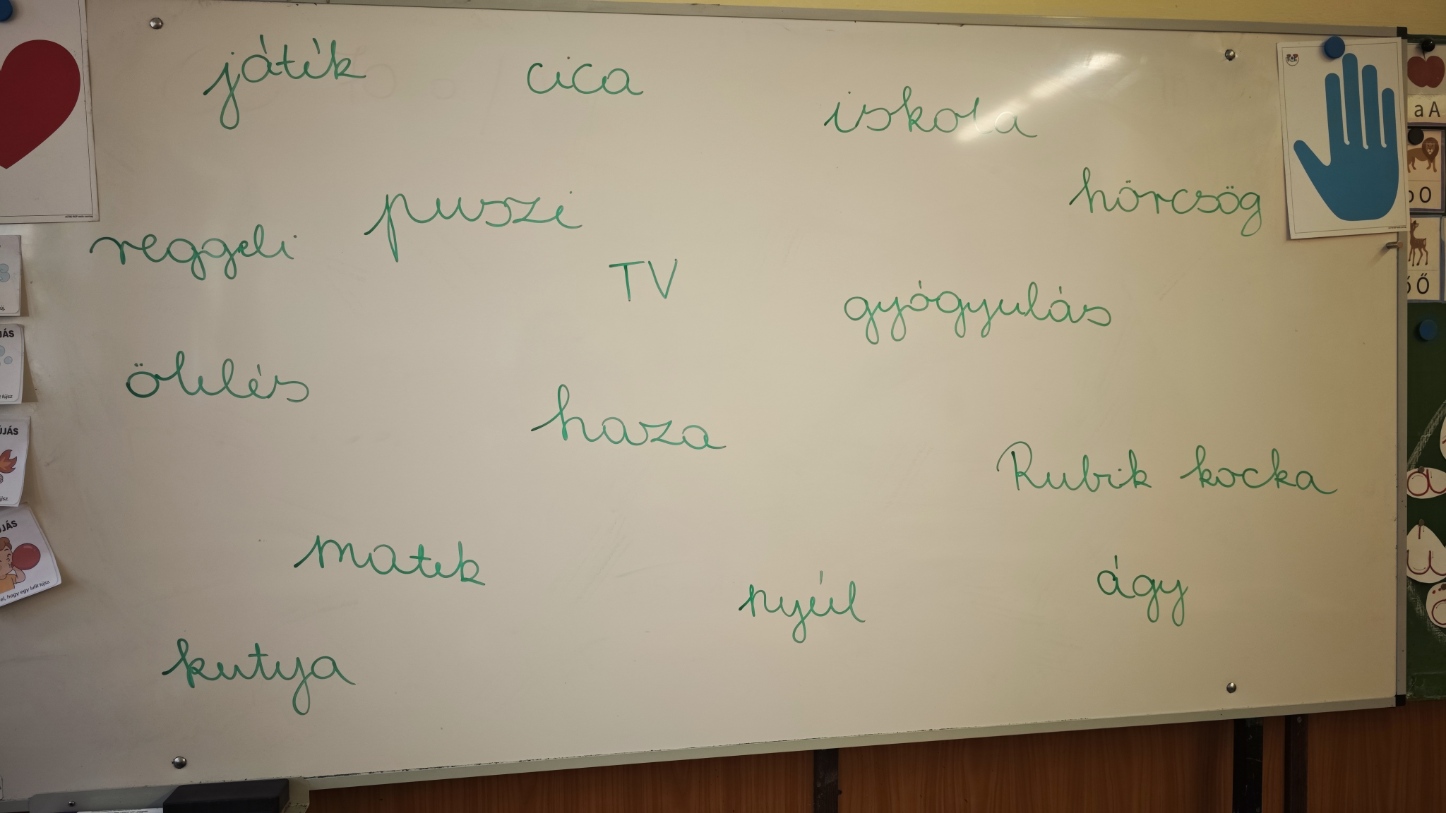 játék cica
iskola
hörcsög
puszi
reggeli
TV
gyógyulás
öklés
haza
Rubik kocka
matek
nyúl
ágy
kutya
a A
O
Ő
JÁS
ÚJÁS
ÚJÁS